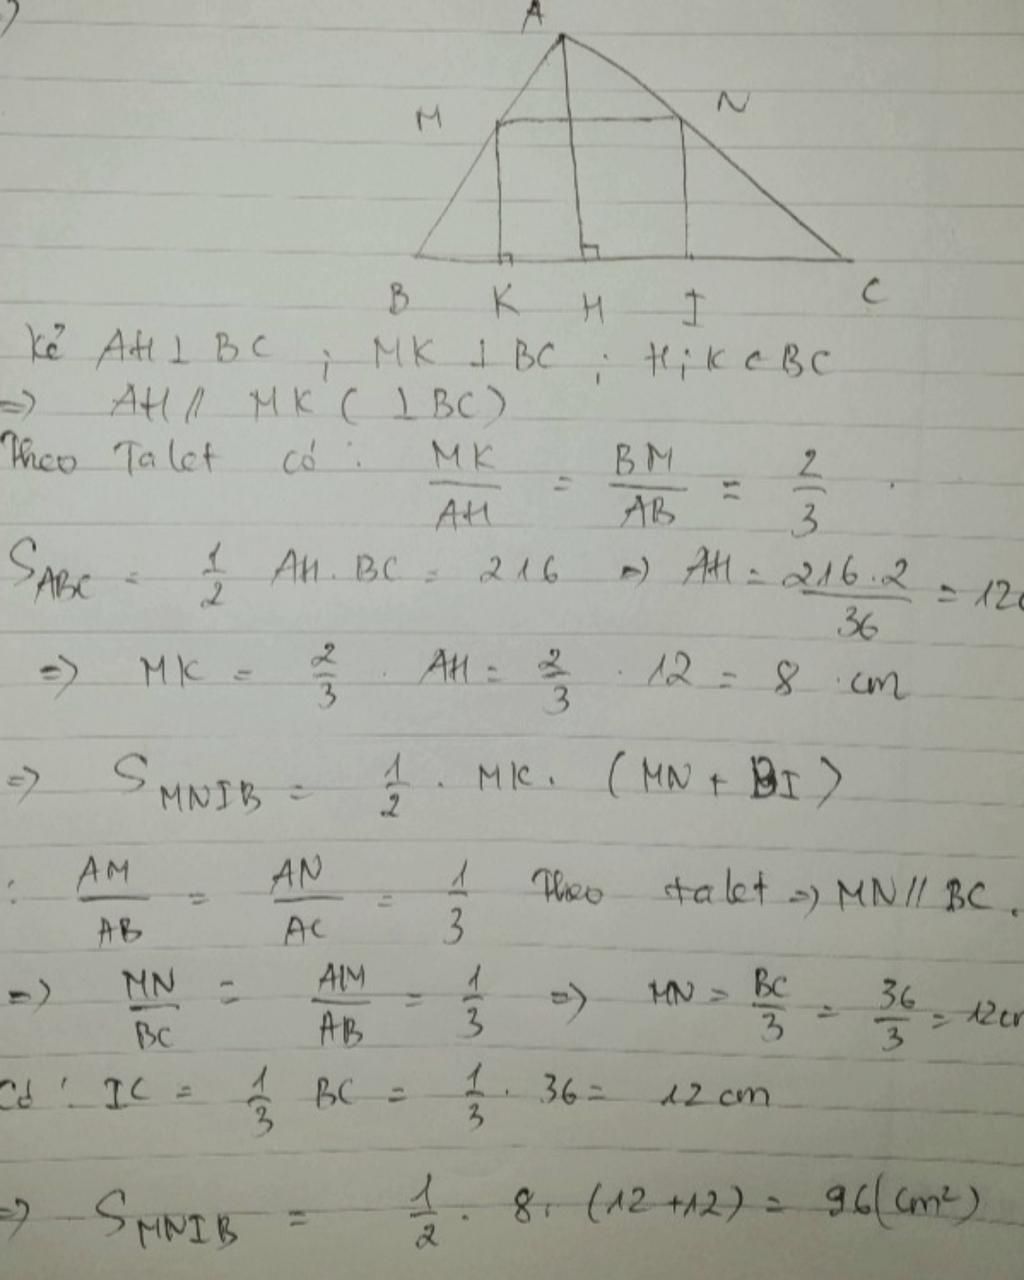 A
M N
B K H I C
Kẻ AH ⊥ BC ; MK ⊥ BC ; H; K ∈ BC
=> AH // MK ( ⊥ BC)
Theo Talet có : MK/AH = BM/AB = 2/3 .
S_ABC = 1/2 AH . BC = 216 => AH = 216.2/36 = 12c
=> MK = 2/3 . AH = 2/3 . 12 = 8 cm
=> S_MNIB = 1/2 . MK . (MN + BI)
: AM/AB = AN/AC = 1/3 Theo talet => MN // BC .
=> MN/BC = AM/AB = 1/3 => MN = BC/3 = 36/3 = 12cm
Có : IC = 1/3 BC = 1/3 . 36 = 12 cm
=> S_MNIB = 1/2 . 8 . (12 + 12) = 96 (cm²)